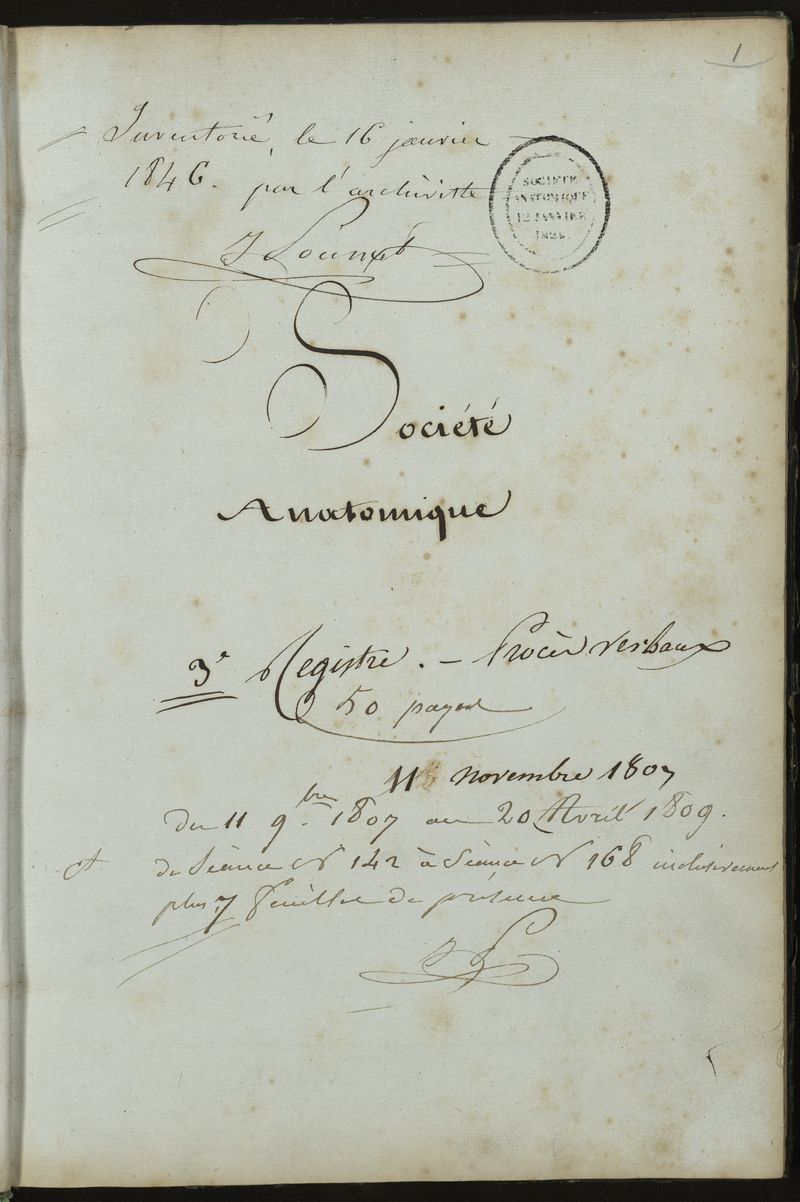 1
Inventorié, le 16 janvier
1846. par l'archiviste
SOCIÉTÉ
ANATOMIQUE
12 JANVIER
Société
Anatomique
3e Registre. – Procès verbaux
50 pages
11 novembre 1807
Du 11 9bre 1807 au 20 Avril 1809.
et de Séance No 142 à Séance No 168 inclusivement
plus 7 feuilles de présence